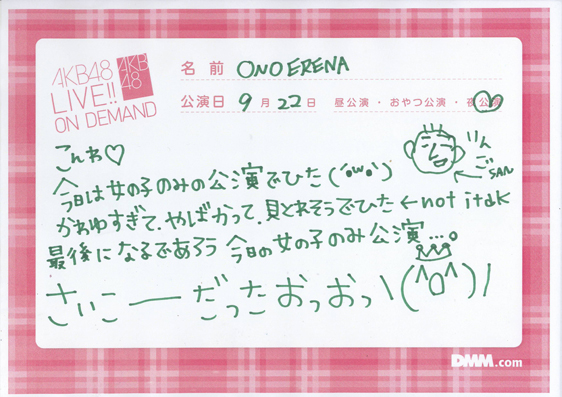 AKB48
LIVE!!
ON DEMAND
AKB
48
名前 ONO ERENA
公演日 9月22日 昼公演・おやつ公演・夜公演
こんわ♡
今日は女の子のみの公演でひた(´ω`)
かわゆすぎて、やばかって、見とれそうでひた←not itak
最後になるであろう 今日の女の子のみ公演…。
さいこーーだったおっおっ\(^O^)/
りん
ご
SAN
DMM.com